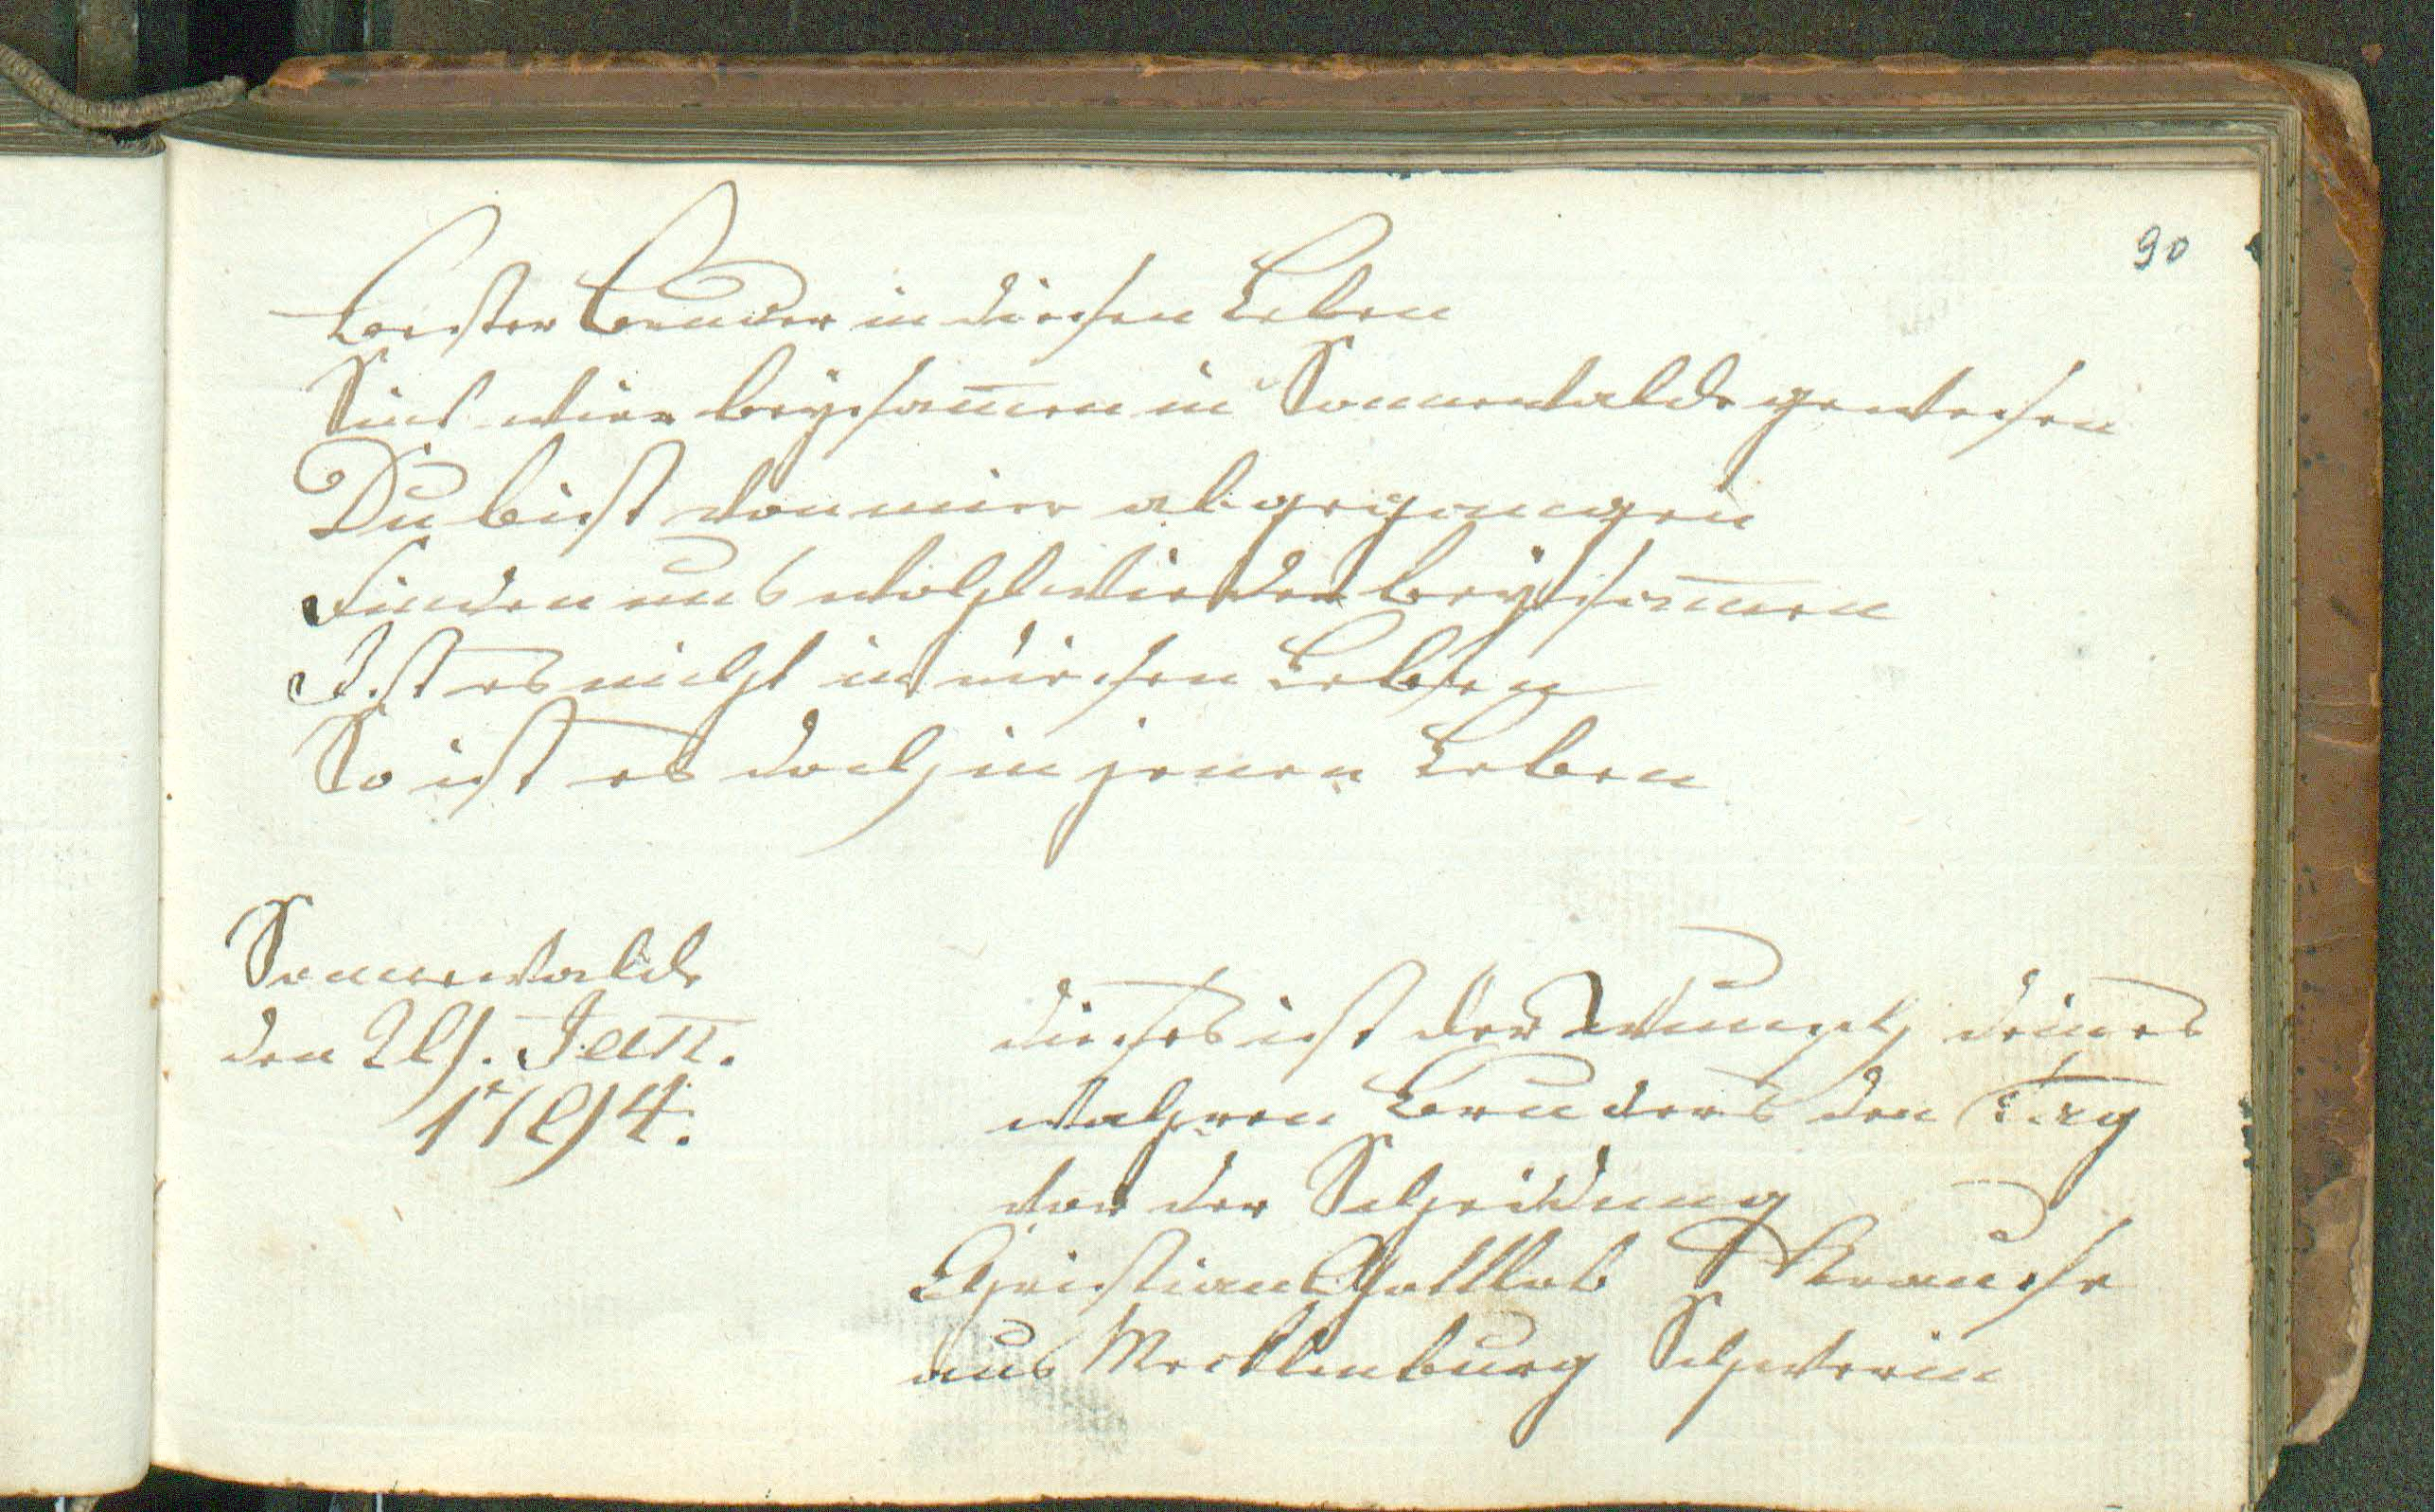 90
Bester Bruder in diesen Leben
Sind wir beysam̅en in Sonnewalde gewesen
Du bist von mir abgegangen
Finden uns wohl wieder beysam̅en
Ist es nicht in diesen Leben
So ist es doch in jenen Leben
Sonnewalde
den 29. Jan̅.
1794.
dieses ist der Wunsch deines
wahren Bruders den Tag
vor der Scheidung
Christian Gottlob Krause
aus Mecklenburg Schwerin